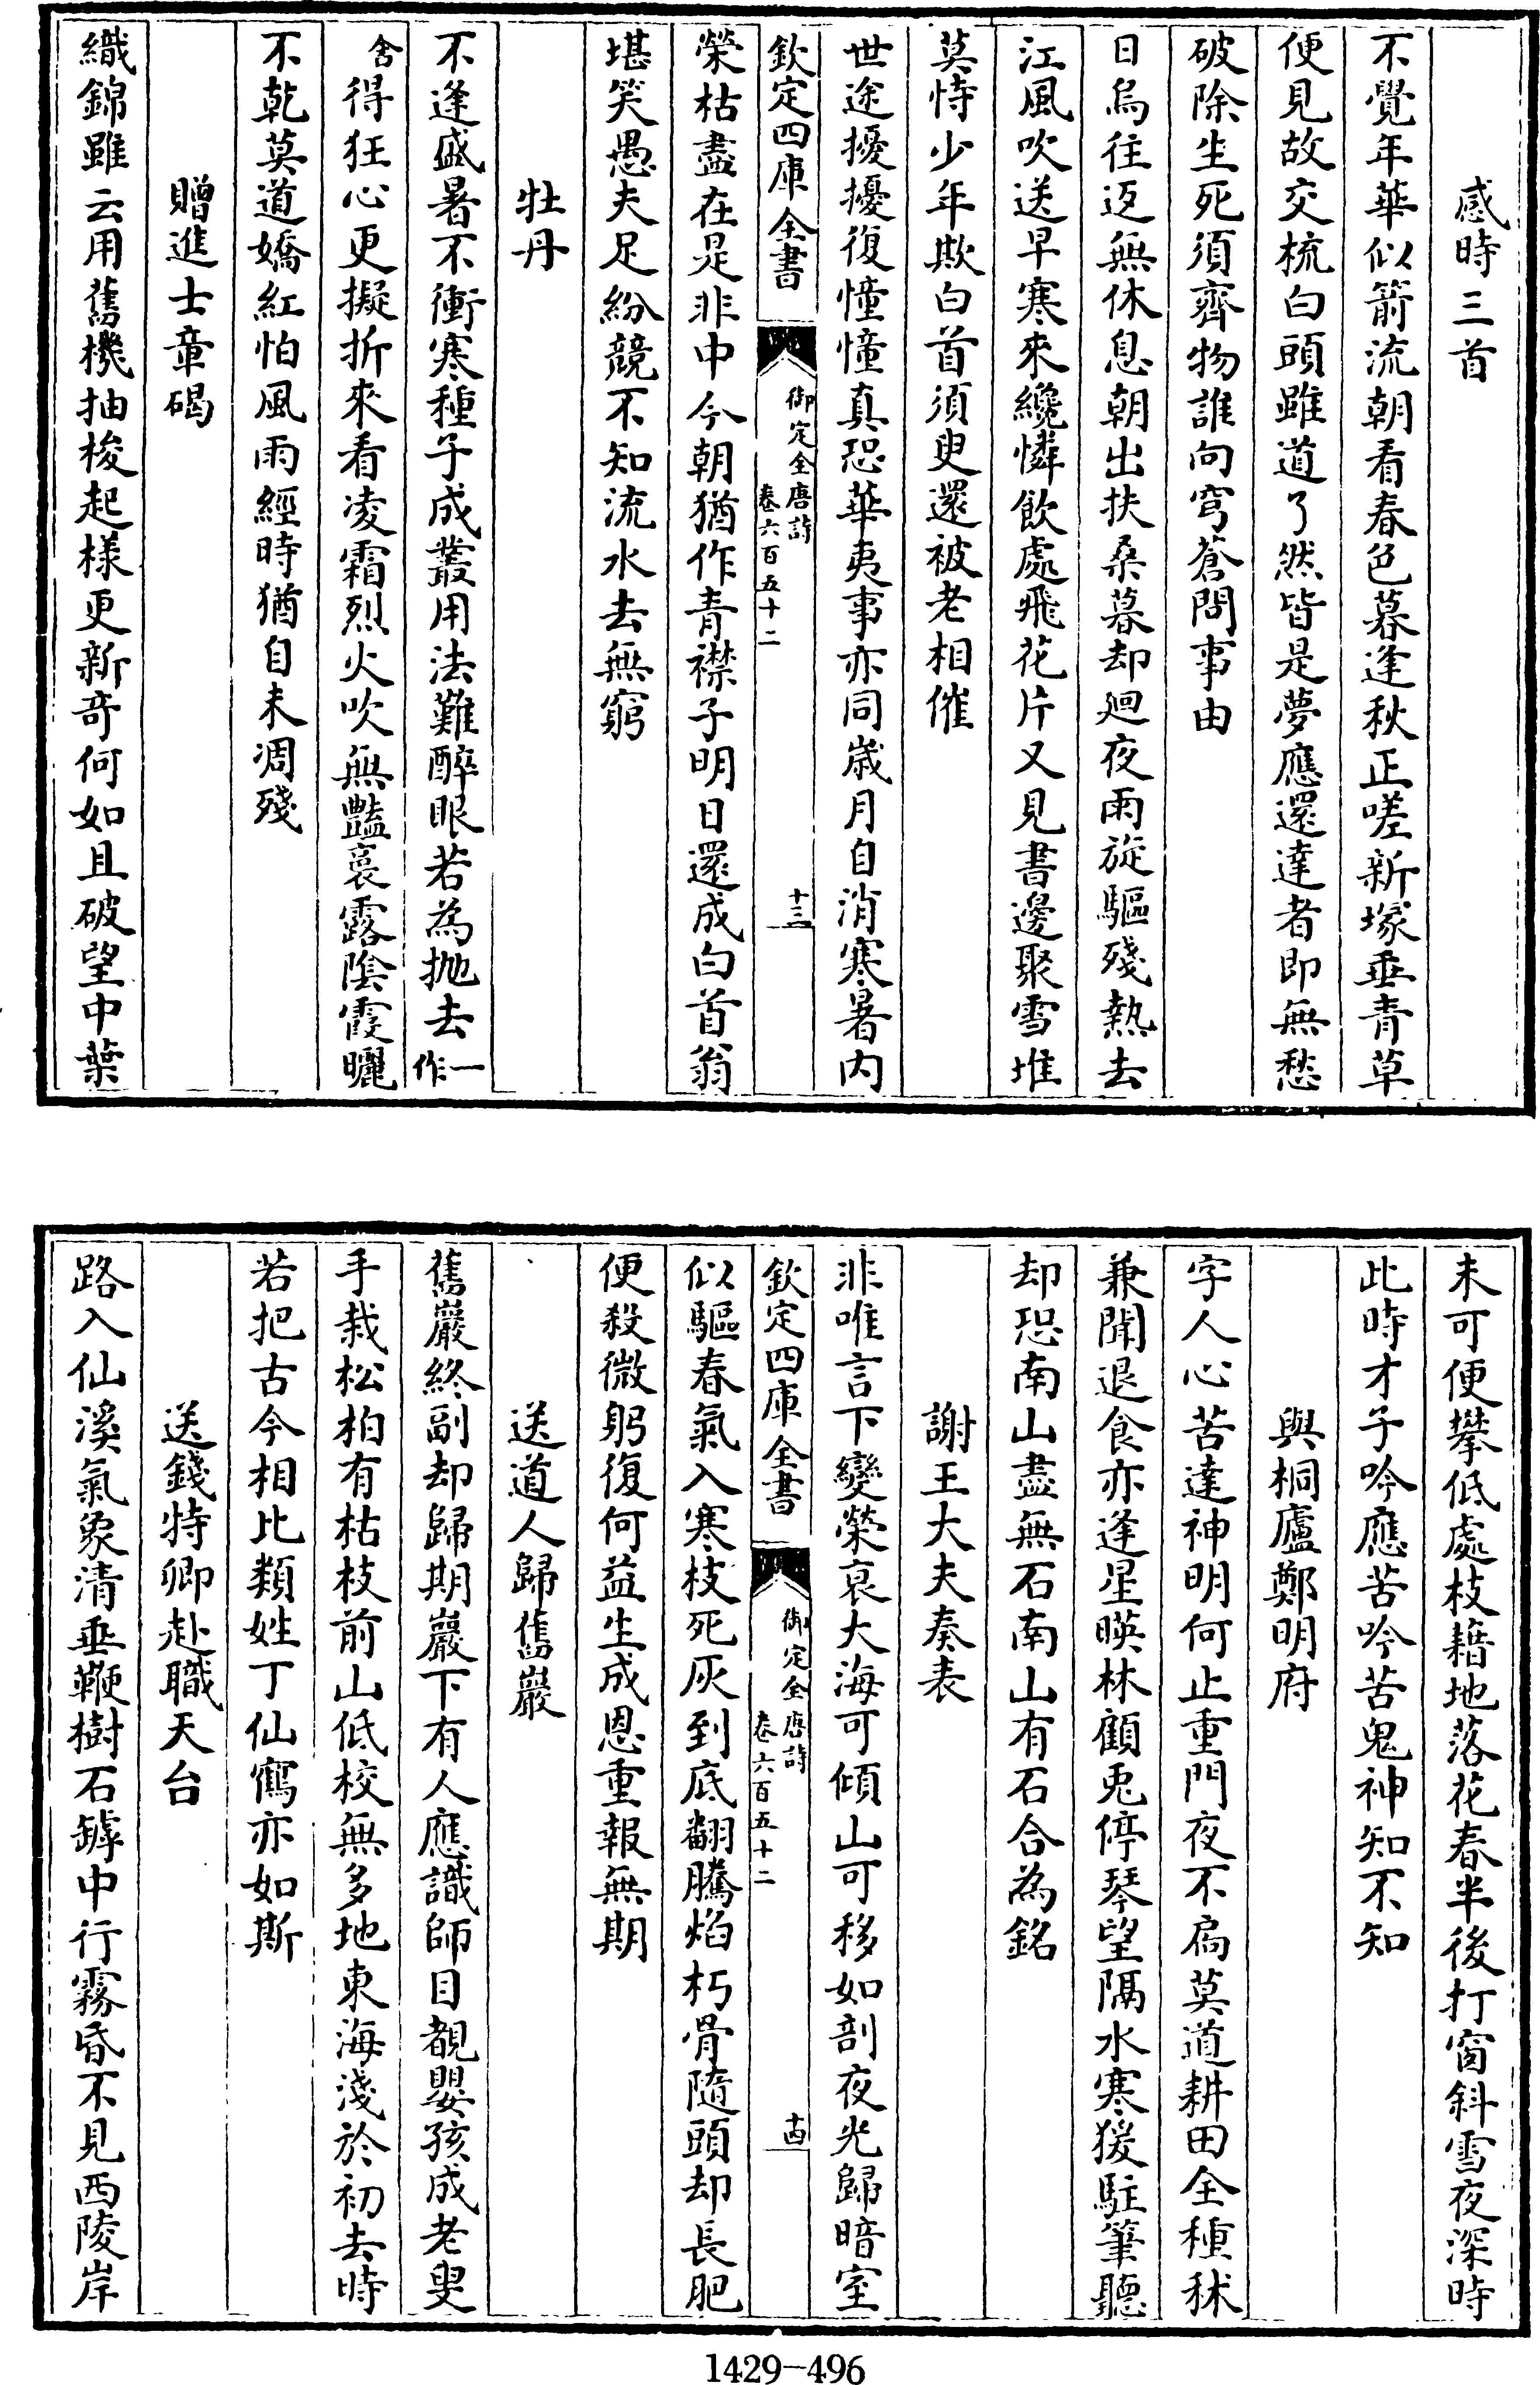 感時三首
不覺年華似箭流朝看春色暮逢秋正嗟新塚垂青草
便見故交梳白頭雖道了然皆是夢應還達者即無愁
破除生死須齊物誰向穹蒼問事由
日烏往返無休息朝出扶桑暮却廻夜雨旋驅殘熱去
江風吹送早寒來纔憐飲處飛花片又見書邊聚雪堆
莫恃少年欺白首須臾還被老相催
世途擾擾復憧憧真恐華夷事亦同歲月自消寒暑内
欽定四庫全書
御定全唐詩
卷六百五十二
十三
榮枯盡在是非中今朝猶作青襟子明日還成白首翁
堪笑愚夫足紛競不知流水去無窮
牡丹
不逢盛暑不衝寒種子成叢用法難醉眼若為抛去一作
舍得狂心更擬折來看凌霜烈火吹無豔裛露陰霞曬
不乾莫道嬌紅怕風雨經時猶自未凋殘
贈進士章碣
織錦雖云用舊機抽梭起様更新奇何如且破望中葉
未可便攀低處枝藉地落花春半後打窗斜雪夜深時
此時才子吟應苦吟苦鬼神知不知
與桐廬鄭明府
字人心苦達神明何止重門夜不扃莫道耕田全種秫
兼聞退食亦逢星暎林顧兎停琴望隔水寒猨駐筆聽
却恐南山盡無石南山有石合為銘
謝王大夫奏表
非唯言下變榮衰大海可傾山可移如剖夜光歸暗室
欽定四庫全書
御定全唐詩
卷六百五十二
十四
似驅春氣入寒枝死灰到底翻騰焰朽骨隨頭却長肥
便殺微躬復何益生成恩重報無期
送道人歸舊巖
舊巖終副却歸期巖下有人應識師目覩嬰孩成老叟
手栽松柏有枯枝前山低校無多地東海淺於初去時
若把古今相比類姓丁仙鶴亦如斯
送錢特卿赴職天台
路入仙溪氣象清垂鞭樹石罅中行霧昏不見西陵岸
1429-496